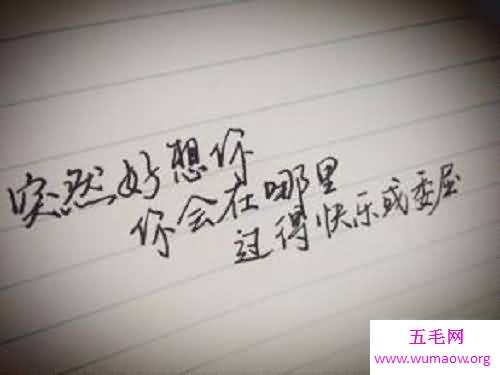 突然好想你
你会在哪里
过得快乐或委屈
五毛网
www.wumaow.org